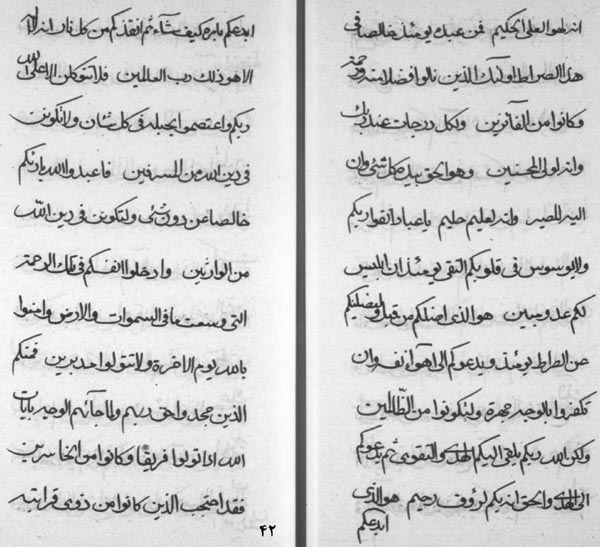 انه لهو العلي الحكيم فمن عبدك يومئذ خالصا في
هذا الصراط اولئك الذين نالوا فضلا منه ورحمة
وكانوا من الفائزين ولكل درجات عند ربك
وانه لولي المحسنين وهو الحق بيده كل شئ وان
اليه المصير وانه لعليم حليم يا عباد اتقوا ربكم
ولا يوسوس في قلوبكم التقي يومئذ ان ابليس
لكم عدو مبين هو الذي اضلكم من قبل وليضلنكم
عن الصراط يومئذ ويدعوكم الى آهواء نفسه وان
تكفروا بالوجه جهرة ولتكونوا من الظالمين
ولكن الله ربكم يلقي اليكم الهدى والتقوى ثم يدعوكم
الى الهدى والحق انه بكم لرؤف رحيم هو الذي
ابدعكم
ابدعكم بامره كيف شآء ثم انقذكم من كل نار انه لا اله
الا هو ذلك رب العالمين فلا تتوكلن الا على الله
ربكم واعتصموا بحبله في كل شان ولا تكونن
في دين الله من المسرفين فاعبدوا الله بارئكم
خالصا عن دون شئ ولتكونن في دين الله
من الوارثين وادخلوا انفسكم في تلك الرحمة
التي وسعت ما في السموات والارض وامنوا
بالله يوم الاخرة ولا تتولوا مدبرين فمنكم
الذين جحدوا حق ربهم ولما جآئهم الوجه بايات
الله اذا تولوا فريقا وكانوا من الخاسرين
فقد احتجب الذين كانوا من ذوي قرابته
۴۲